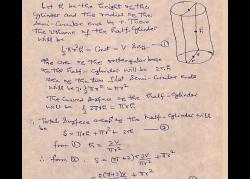 Let h be the height of the
cylinder and the radius of the
Semi-circular ends be r. Then
the volume of the half-cylinder
will be
½πr²h = Const = V say — ①
The area of the rectangular base
of the half-cylinder will be 2r.h
area of the two flat Semi-circular ends
will be 2·½πr² = πr²
The Curved Surface of the half-cylinder
will be ½ 2πrh = πrh.
∴ Total Surface area of the half-cylinder will
be S = πrh + πr² + 2rh — ②
from ① h = 2V/πr²
∴ from ② S = (π+2)r 2V/πr² + πr²